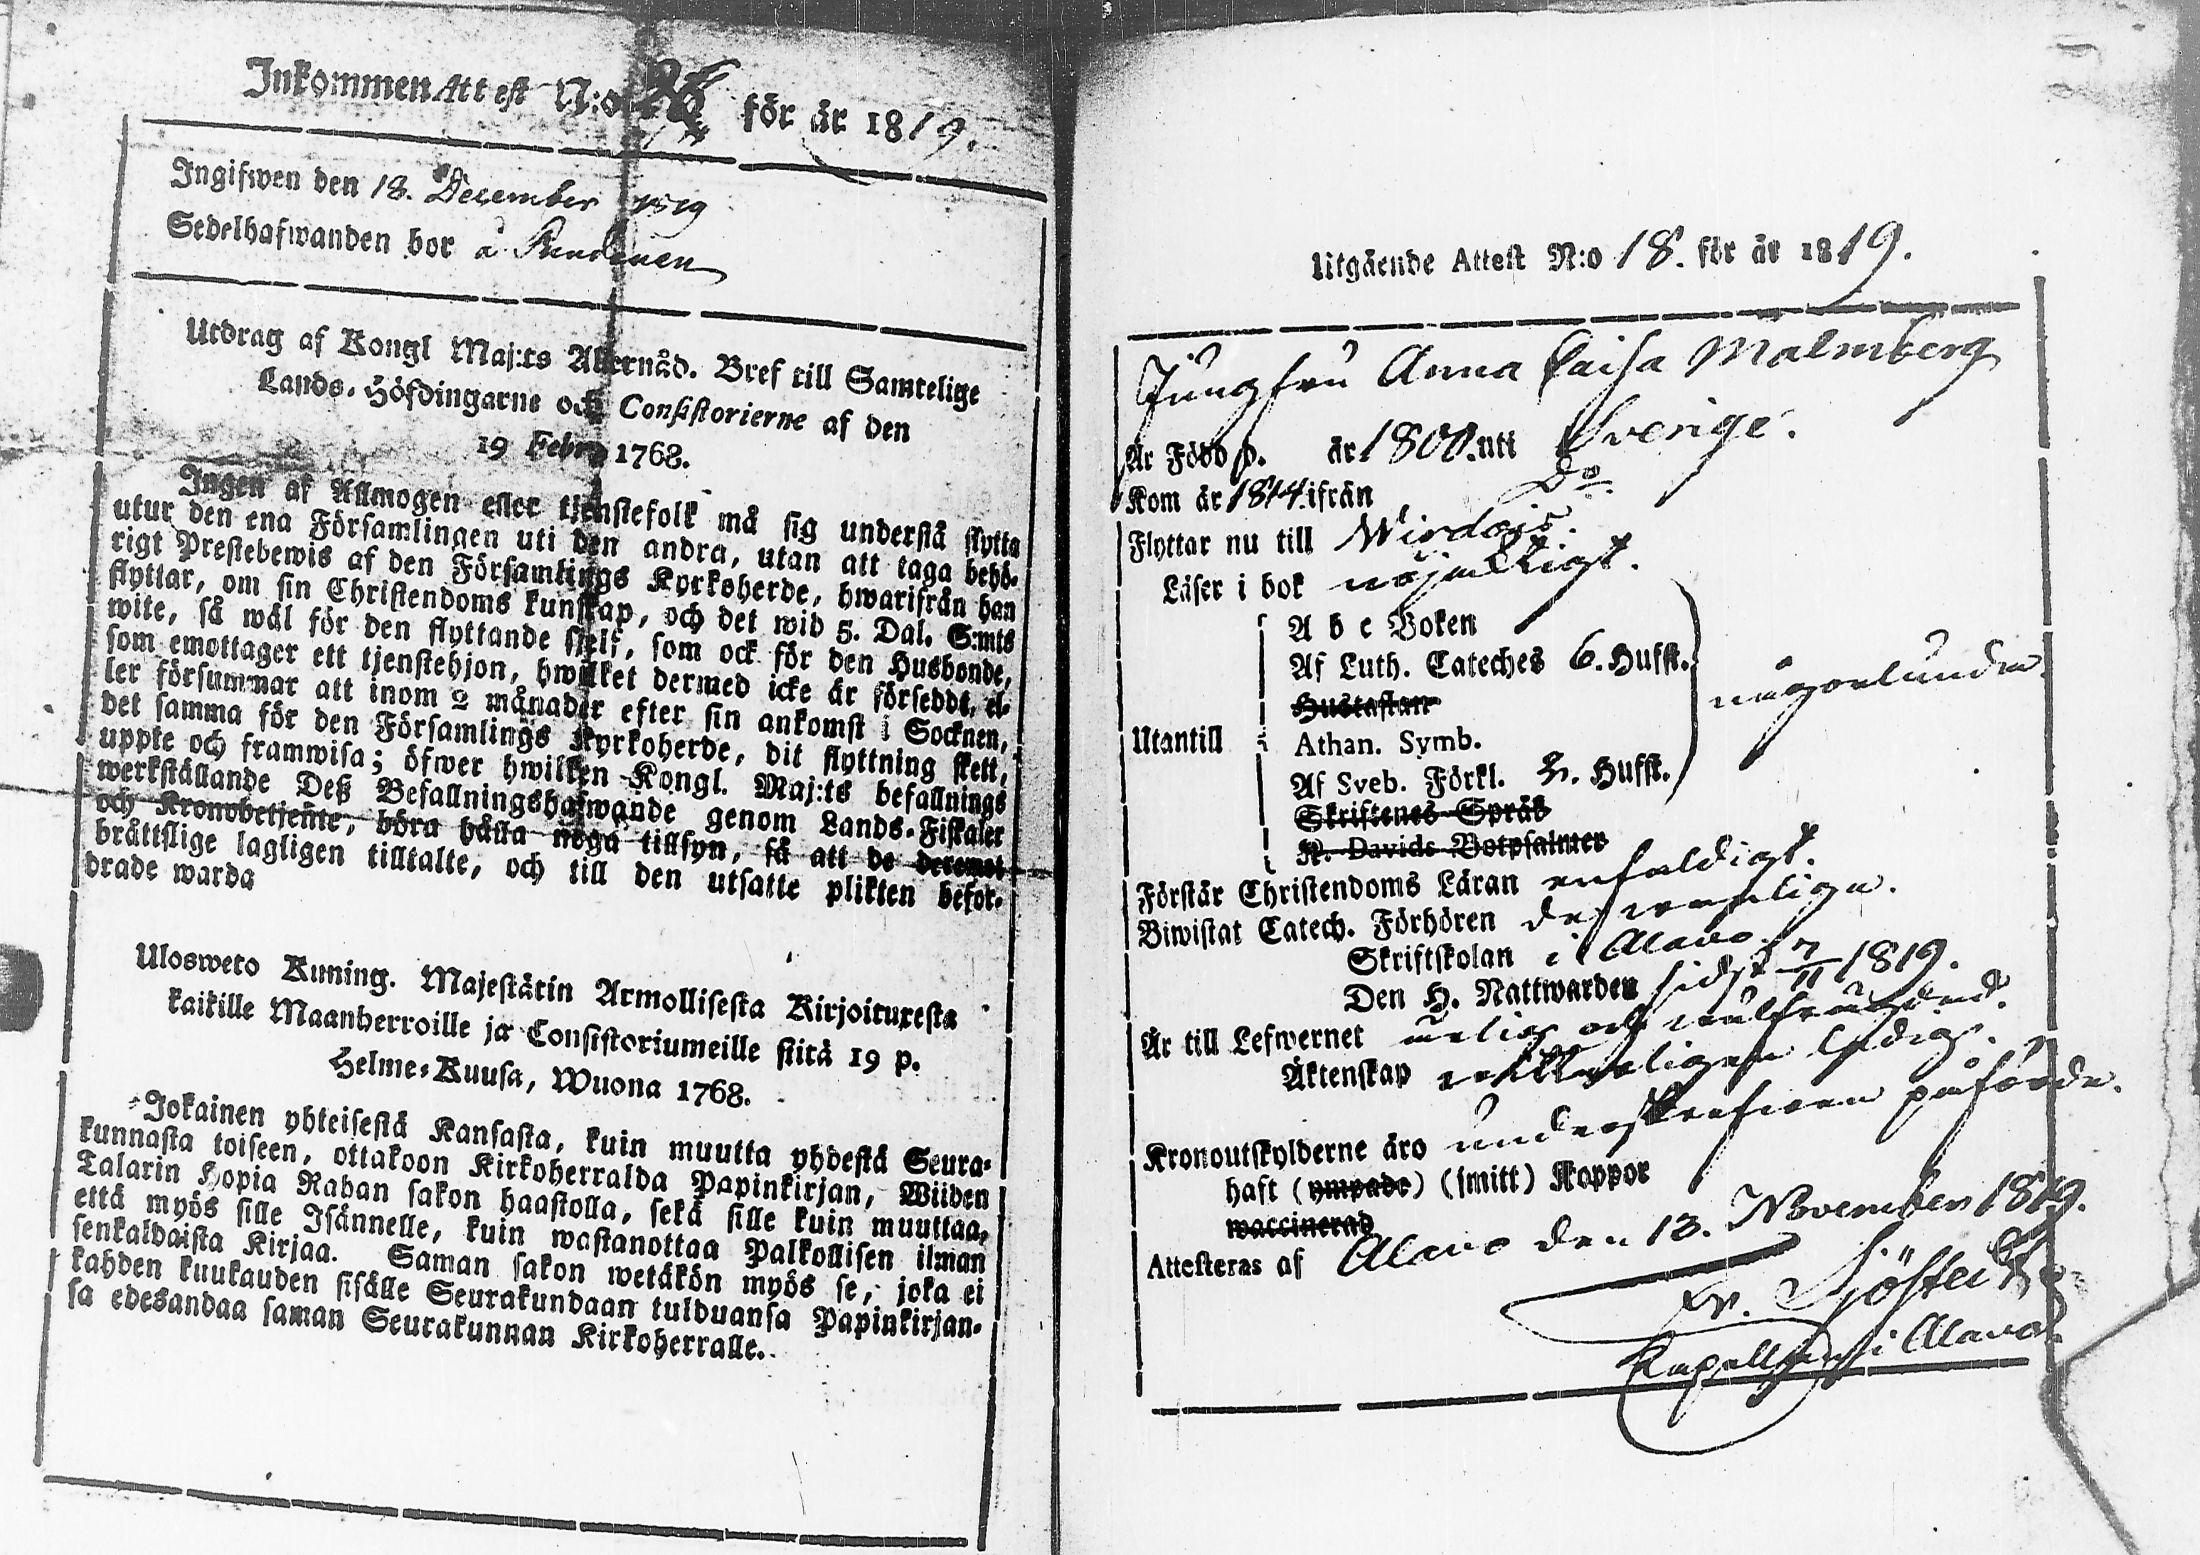 Inkommen Attest N:o 28 för år 1819.
Ingifwen den 18. December 1819
Sedelhafwanden bor å
Utdrag af Kongl Maj:ts Allernåd. Bref till Samtelige
Lands-Höfdingarne och Consistorierne af den
19 Febr. 1768.
Ingen af Allmogen eller tjenstefolk må sig understå flytta
utur den ena Församlingen uti den andra, utan att taga behö-
rigt Prestebewis af den Församlings Kyrkoherde, hwarifrån han
flyttar, om sin Christendoms kunskap, och det wid 5. Dal. S:mts
wite, så wäl för den flyttande sjelf, som ock för den Husbonde,
som emottager ett tjenstehjon, hwilket dermed icke är försedd, el-
ler försummar att inom 2 månader efter sin ankomst i Socknen,
det samma för den Församlings Kyrkoherde, dit flyttning skett,
uppte och framwisa; öfwer hwilken Kongl. Maj:ts befallnings
werkställande Deß Befallningshafwande genom Lands-Fiskaler
och Kronobetjente, böra hålla noga tillsyn, så att de deremot
bråttslige lagligen tilltalte, och till den utsatte plikten befor-
drade warda
Ulosweto Kuning. Majestätin Armollisesta Kirjoituxesta
kaikille Maanherroille ja Consistoriumeille siitä 19 p.
Helme-Kuusa, Wuona 1768.
Jokainen yhteisestä Kansasta, kuin muutta yhdestä Seura-
kunnasta toiseen, ottakoon Kirkoherralda Papinkirjan, Wiiden
Talarin Hopia Rahan sakon haastolla, sekä sille kuin muuttaa,
että myös sille Isännelle, kuin wastanottaa Palkollisen ilman
senkaldaista Kirjaa. Saman sakon wetäkön myös se, joka ei
kahden kuukauden sisälle Seurakundaan tulduansa Papinkirjan-
sa edesandaa saman Seurakunnan Kirkoherralle.
Utgående Attest N:o 18. för år 1819.
Jungfru Anna Caisa Malmberg
Är Född d. år 1800. uti Sverige.
Kom år 1814. ifrån Do.
Flyttar nu till Wirdois.
Läser i bok nöjaktigt.
A b c Boken
Af Luth. Cateches 6. Hufst.
Hustaflan
Utantill Athan. Symb. någorlunda
Af Sveb. Förkl. 2. Hufst.
Skriftenes Språk
K. Davids Botpsalmer
Förstår Christendoms Läran enfaldigt.
Biwistat Catech. Förhören
Skriftskolan i Alavo
Den H. Nattwarden sidst 7/11 1819.
Är till Lefwernet och wälfrägdad.
Äktenskap ledig.
Kronoutskylderne äro underskrefwen påförde.
haft (ympade) (smitt) Koppor
waccinerad
Attesteras af Alavo den 13. November 1819.
Fr. Sjöstedt
Kapellan i Alavo